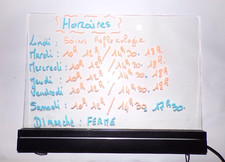 Horaires
Lundi : Soins Réflexologie
Mardi : 10h 12h / 14h30. 18h.
Mercredi : 10h 12h / 14h30. 18h.
Jeudi : 10h 12h / 14h30. 18h.
Vendredi : 10h 12h / 14h30. 18h.
Samedi : 10h 12h / 14h30. 17h30.
Dimanche : FERMÉ